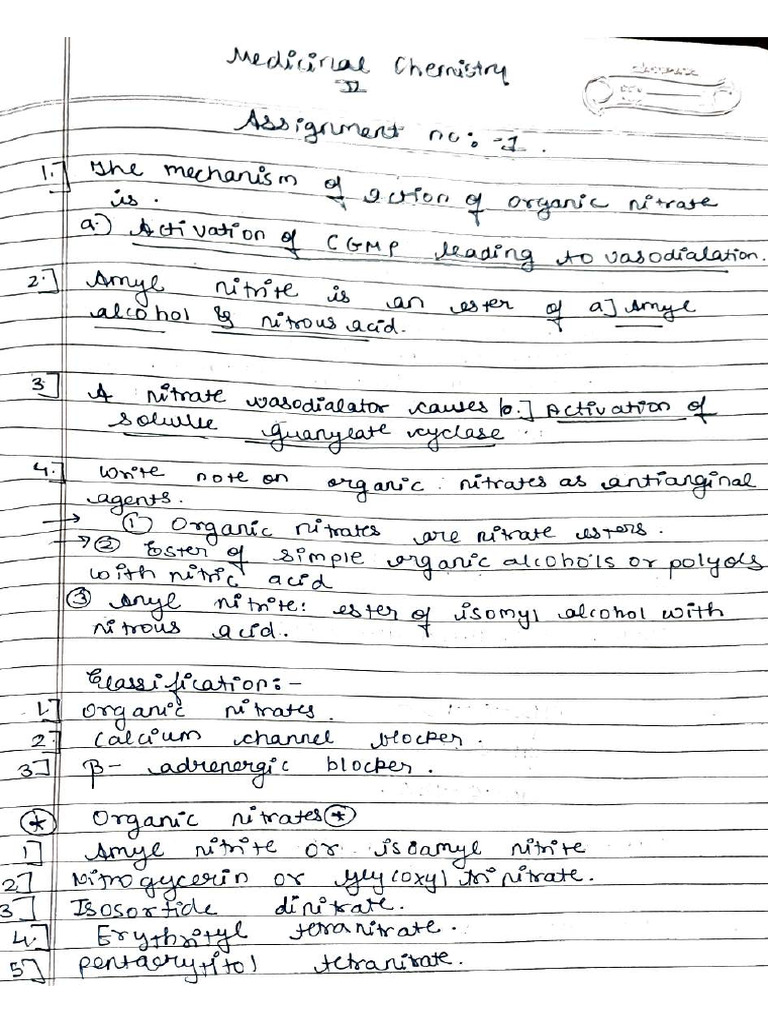 Medicinal Chemistry
II
Assignment no:-1.
1.] The mechanism of action of organic nitrate
is.
a.) Activation of CGMP leading to vasodialation.
2.] Amyl nitrite is an ester of a] Amyl
alcohol & nitrous acid.
3] A nitrate vasodialator causes b.] Activation of
soluble guanylate cyclase
4.] Write note on organic nitrates as antianginal
agents.
→ ① Organic nitrates are nitrate esters.
→ ② Ester of simple organic alcohols or polyols
with nitric acid
③ Amyl nitrite: ester of isomyl alcohol with
nitrous acid.
Classification:-
1.] Organic nitrates.
2.] Calcium channel blocker.
3] β- adrenergic blocker.
(*) Organic nitrates (*)
1] Amyl nitrite or isoamyl nitrite
2] Nitrogycerin or trinitrate.
3] Isosorbide dinitrate.
4.] Erythrityl tetranitrate.
5] pentaerytitol tetranitrate.